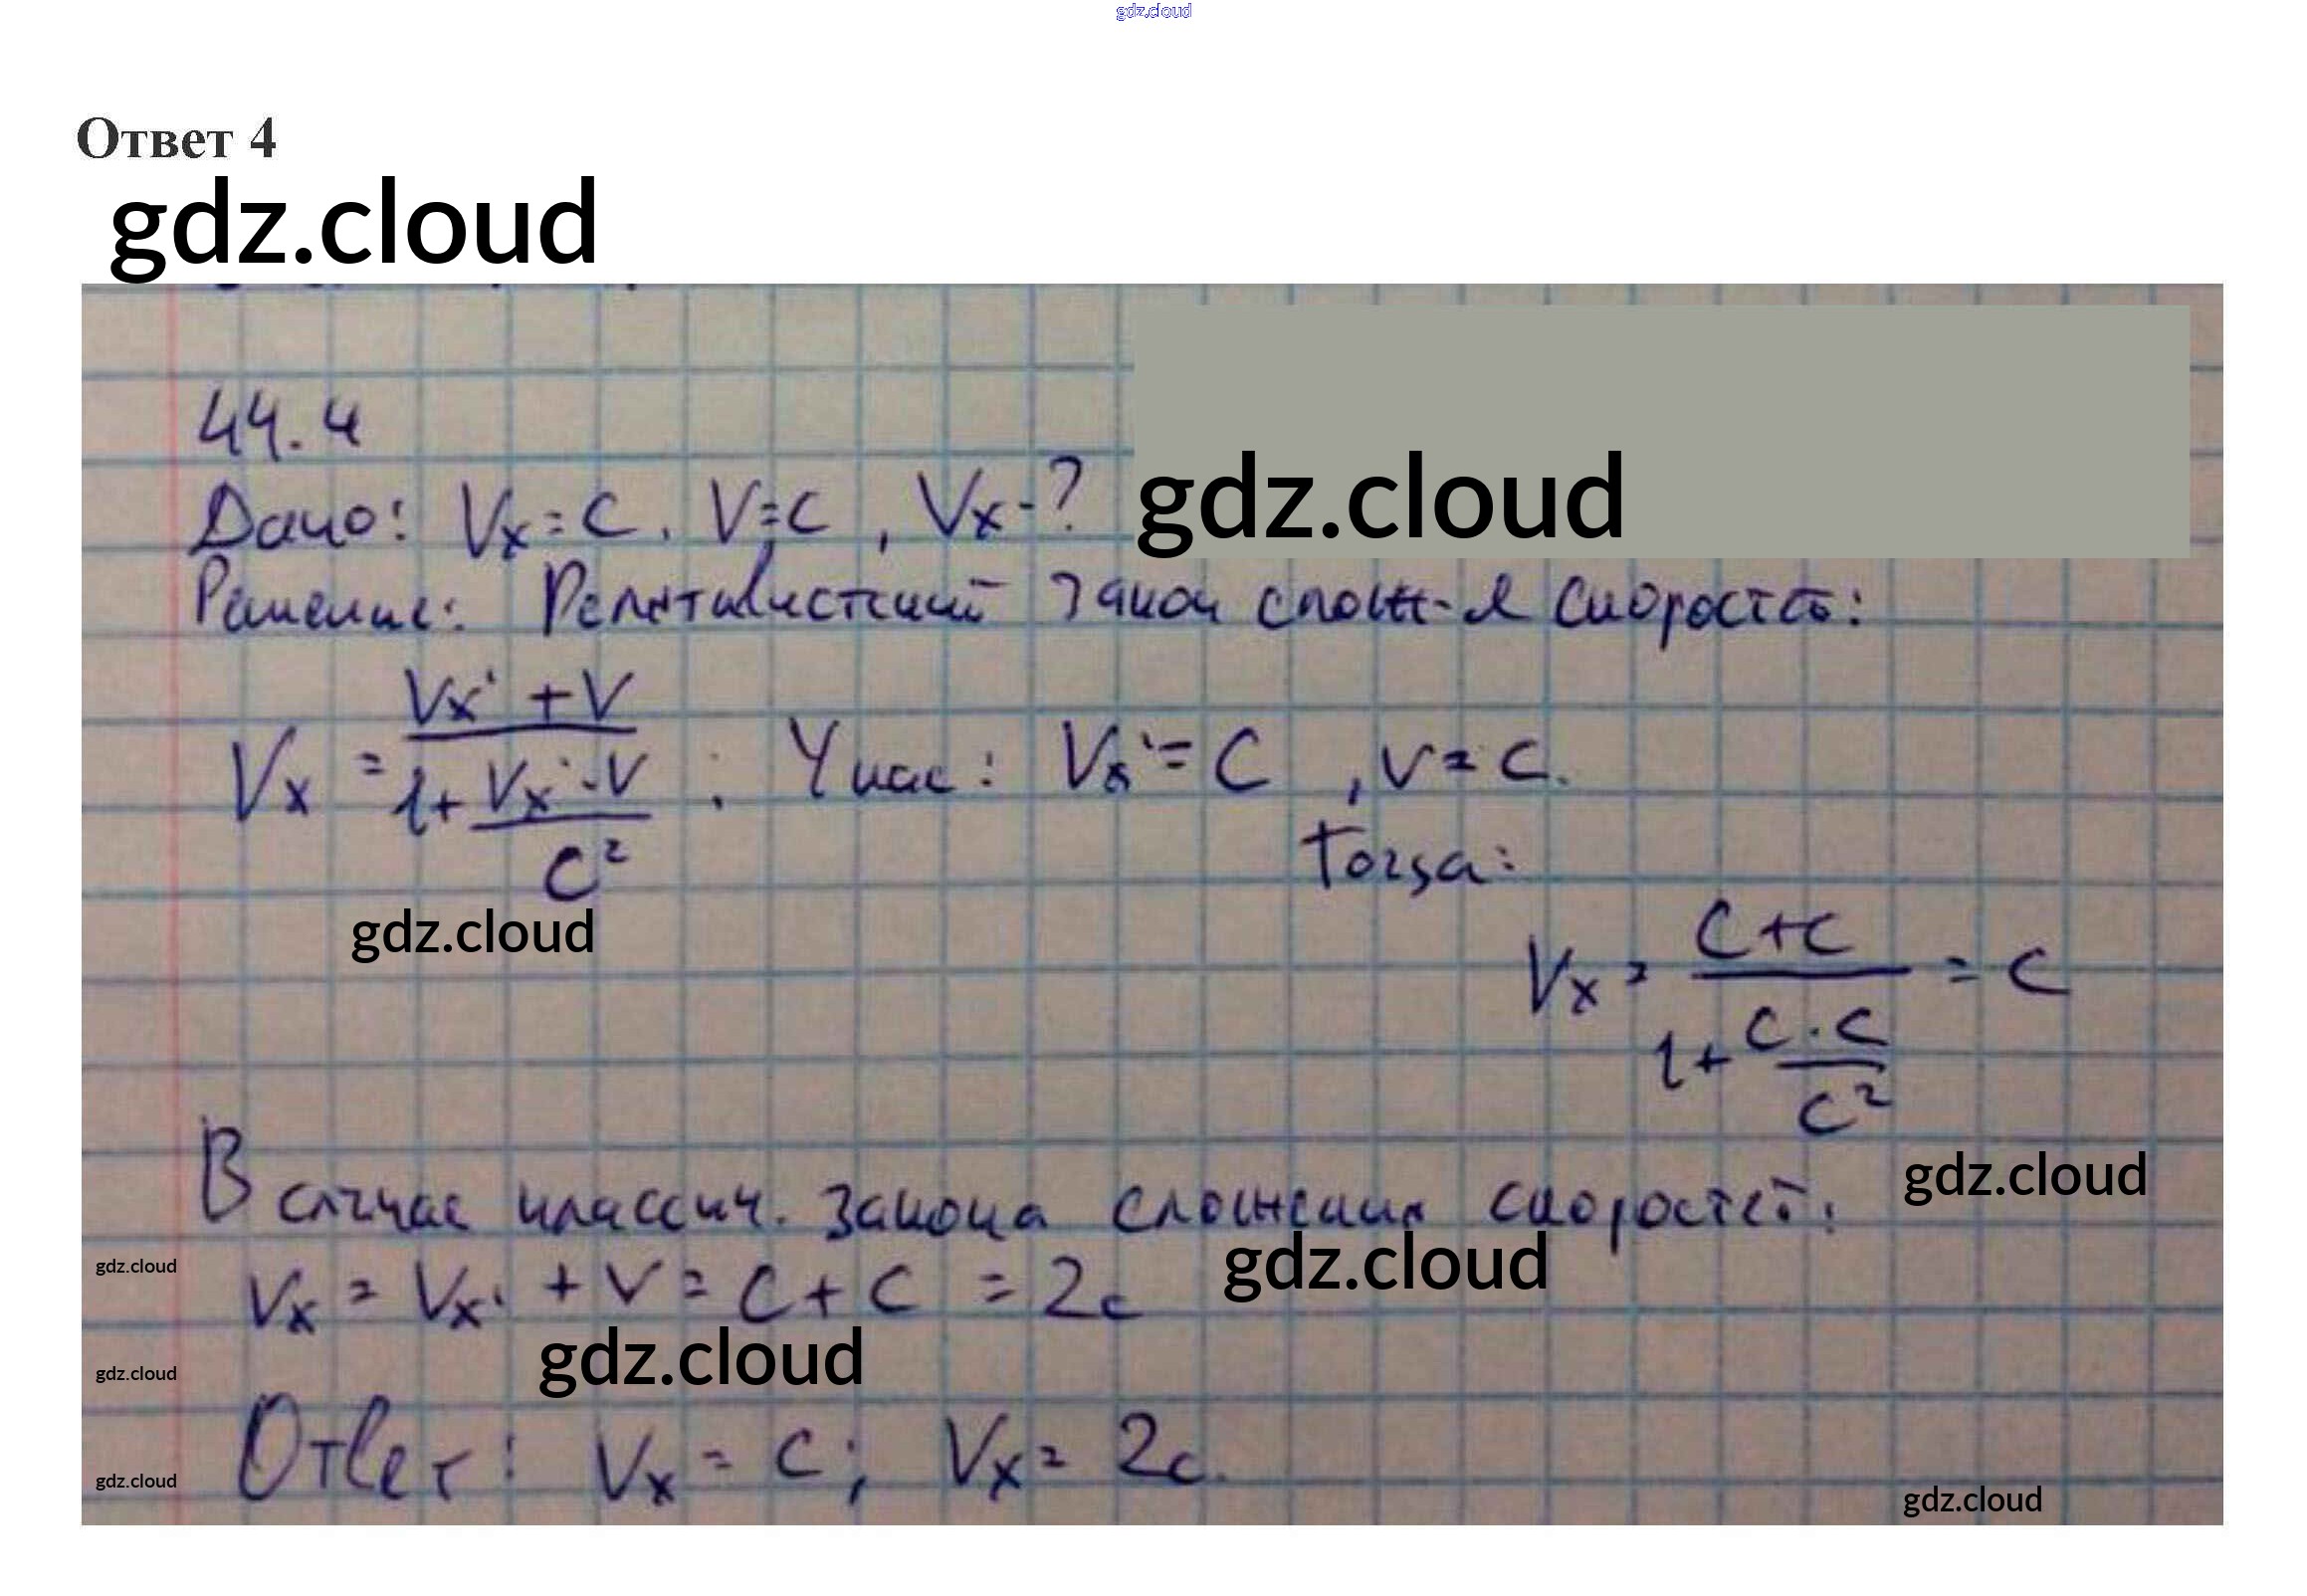 gdz.cloud
Ответ 4
gdz.cloud
44.4
Дано: Vx = C, V = C, Vx - ?
gdz.cloud
Решение: Релятивистский закон слож-я скоростей:
Vx = (Vx' + V) / (1 + (Vx' · V) / C²) ; У нас: Vx' = C , V = C.
Тогда:
gdz.cloud
Vx = (C + C) / (1 + (C · C) / C²) = C
gdz.cloud
В случае классич. закона сложения скоростей:
gdz.cloud
gdz.cloud
Vx = Vx' + V = C + C = 2c
gdz.cloud
gdz.cloud
Ответ: Vx = C; Vx = 2c.
gdz.cloud
gdz.cloud